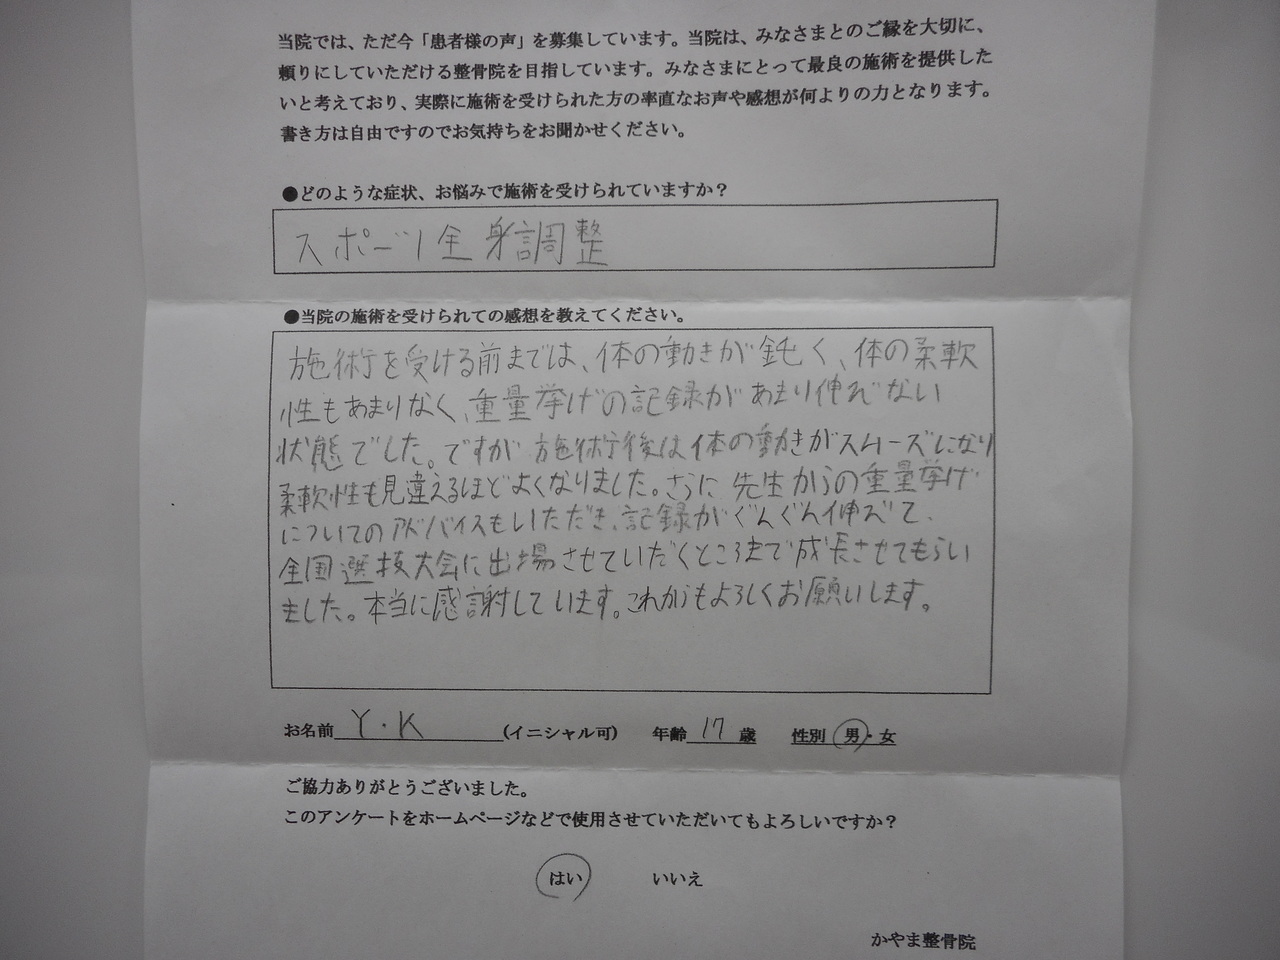 当院では、ただ今「患者様の声」を募集しています。当院は、みなさまとのご縁を大切に、
頼りにしていただける整骨院を目指しています。みなさまにとって最良の施術を提供した
いと考えており、実際に施術を受けられた方の率直なお声や感想が何よりの力となります。
書き方は自由ですのでお気持ちをお聞かせください。
●どのような症状、お悩みで施術を受けられていますか？
スポーツ全身調整
●当院の施術を受けられての感想を教えてください。
施術を受ける前までは、体の動きが鈍く、体の柔軟
性もあまりなく、重量挙げの記録があまり伸びない
状態でした。ですが施術後は体の動きがスムーズになり
柔軟性も見違えるほどよくなりました。さらに先生からの重量挙げ
についてのアドバイスもいただき、記録がぐんぐん伸びて、
全国選抜大会に出場させていだくところまで成長させてもらい
ました。本当に感謝しています。これからもよろしくお願いします。
お名前 Y・K (イニシャル可) 年齢 17 歳 性別 男・女
ご協力ありがとうございました。
このアンケートをホームページなどで使用させていただいてもよろしいですか？
はい いいえ
かやま整骨院